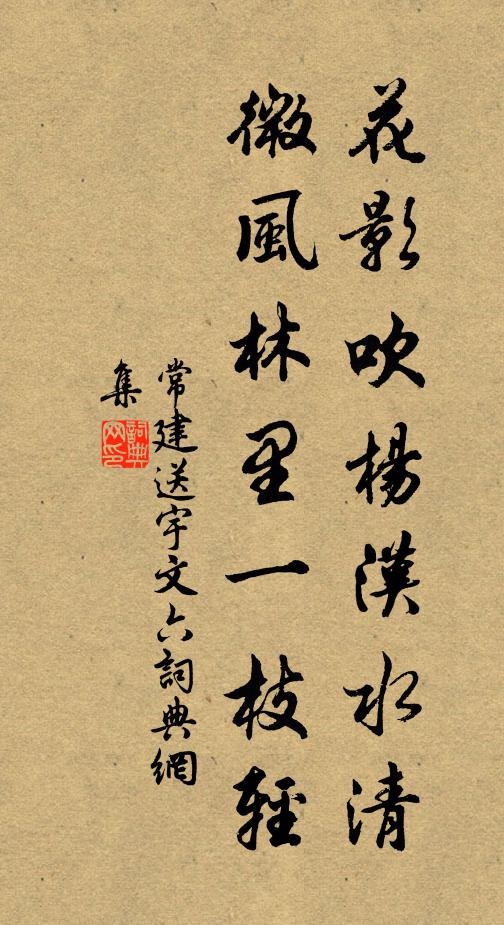 花影吹楊漢水清
微風林里一枝輕
常建送宇文六詞典網
集
詞典
网印